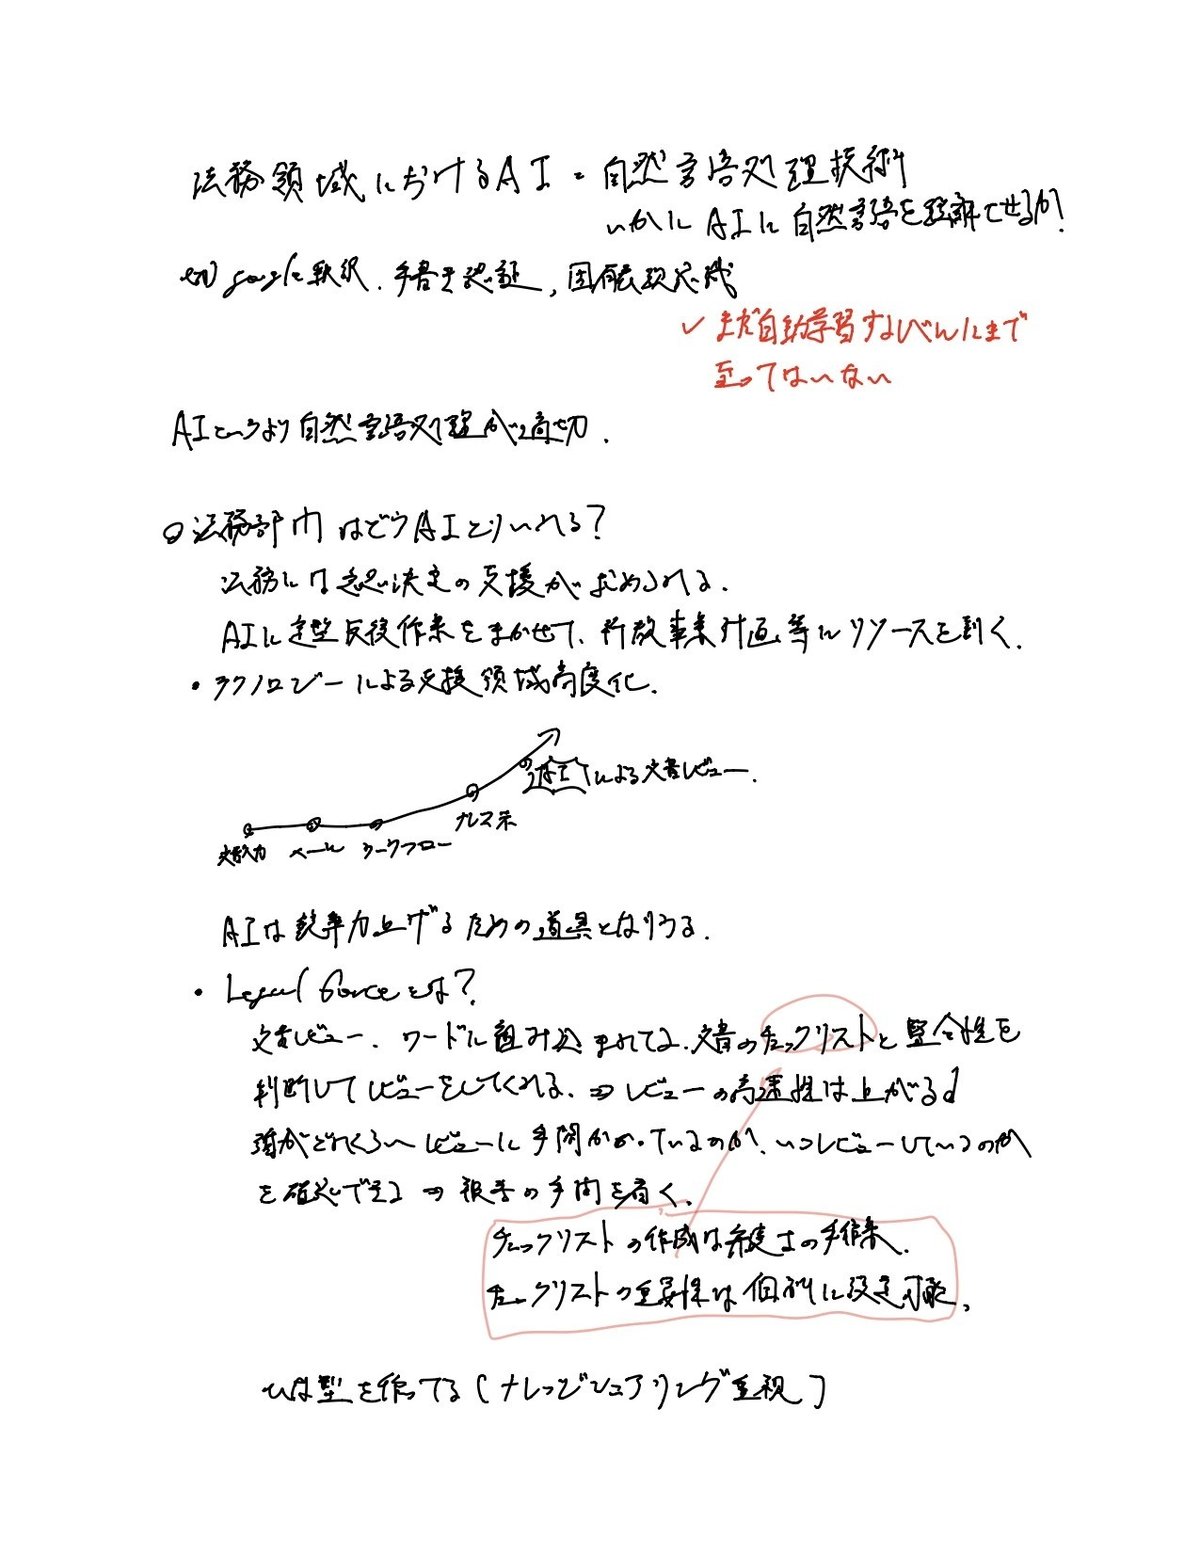 法務領域におけるAI = 自然言語処理技術
いかにAIに自然言語を理解させるか?
ex) google翻訳、手書き認証、
✓ まだ自動学習するべんにまで
至ってはいない
AIというより自然言語処理が適切.
○法務部内はどうAIとりいれる?
法務には意思決定の支援が求められる.
AIに定型反復作業をまかせて、新規事業計画等にリソースを割く.
・テクノロジーによる支援領域高度化.
による文書レビュー.
ナレッジ
文書入力 メール ワークフロー
AIは効率力上げるための道具となりうる.
・Legal Forceとは?
文書レビュー. ワードに組み込まれてる. 文書のチェックリストと整合性を
判断してレビューをしてくれる. ⇒ レビューの高速性は上がる↓
誰がどれくらいレビューに手間かかっているのか、いつレビューしているのか
を確認できる ⇒ 報告の手間を省く.
チェックリストの作成は弁護士の手作業.
チェックリストの重要性は個別に設定可能.
ひな型を作ってる(ナレッジシェアリング重視)